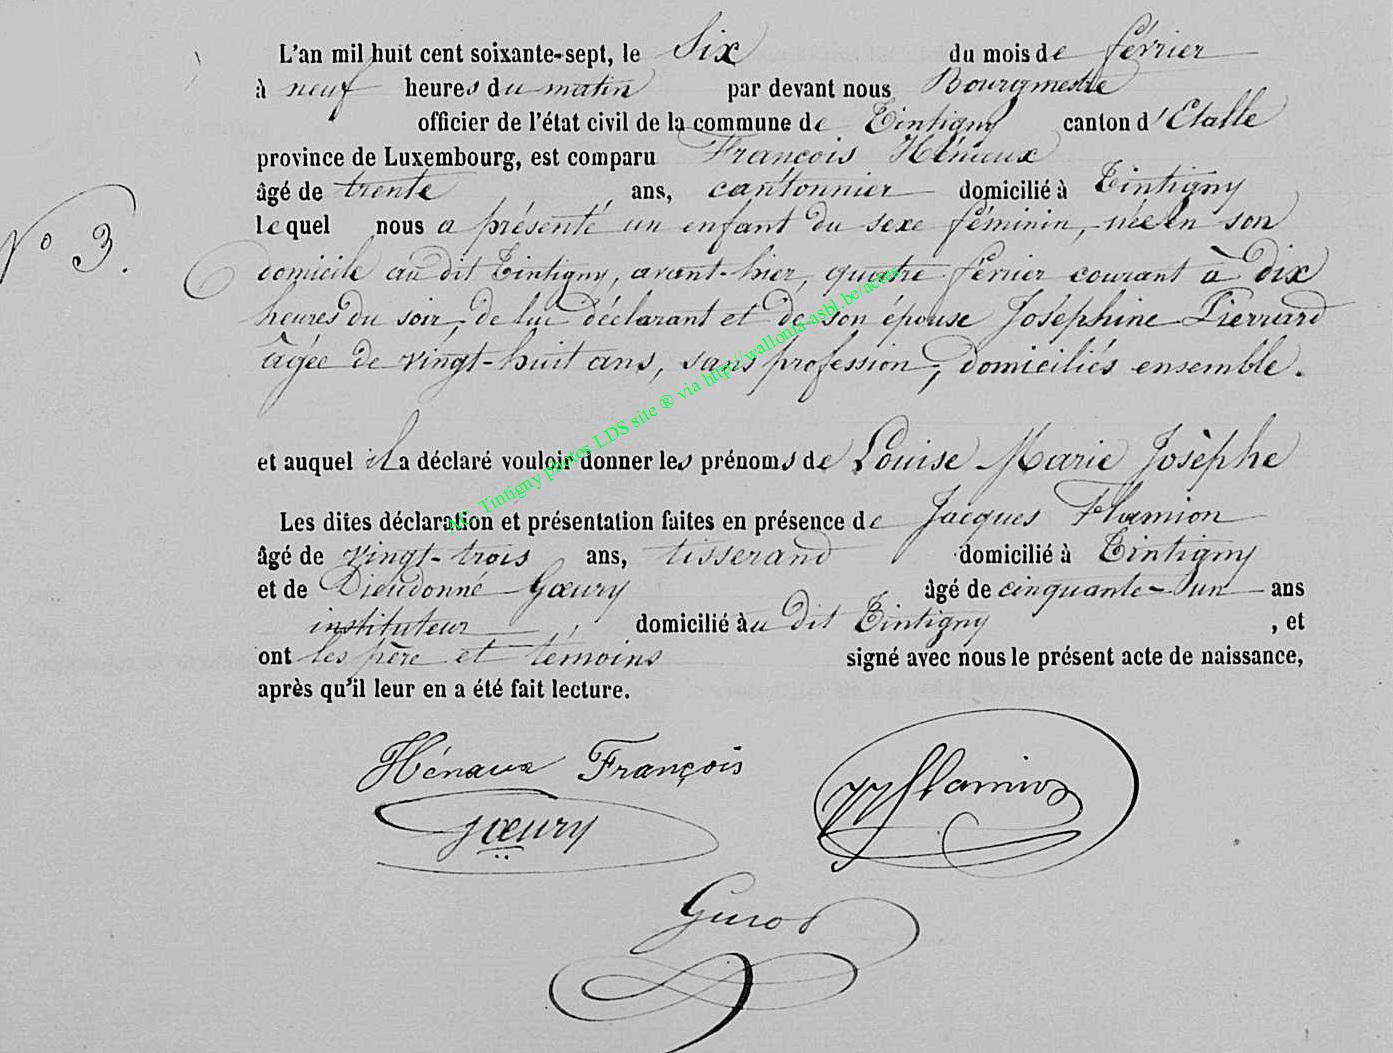 L'an mil huit cent soixante-sept, le Six du mois de février
à neuf heures du matin par devant nous Bourgmestre
officier de l'état civil de la commune de Tintigny canton d'Etalle
province de Luxembourg, est comparu François Hénieux
âgé de trente ans, cantonnier domicilié à Tintigny
lequel nous a présenté un enfant du sexe féminin, née en son
N° 3.
domicile au dit Tintigny, avant-hier, quatre février courant à dix
heures du soir, de lui déclarant et de son épouse Joséphine Pierrard
âgée de vingt-huit ans, sans profession, domiciliés ensemble.
et auquel il a déclaré vouloir donner les prénoms de Louise Marie Josèphe
Les dites déclaration et présentation faites en présence de Jacques Flamion
âgé de vingt-trois ans, tisserand domicilié à Tintigny
et de Dieudonné Gœury âgé de cinquante-un ans
instituteur, domicilié au dit Tintigny, et
ont les père et témoins signé avec nous le présent acte de naissance,
après qu'il leur en a été fait lecture.
Hénaux François
JJ Flamion
Gœury
AC Tintigny photos LDS site ® via http://wallonia-asbl.be/actes